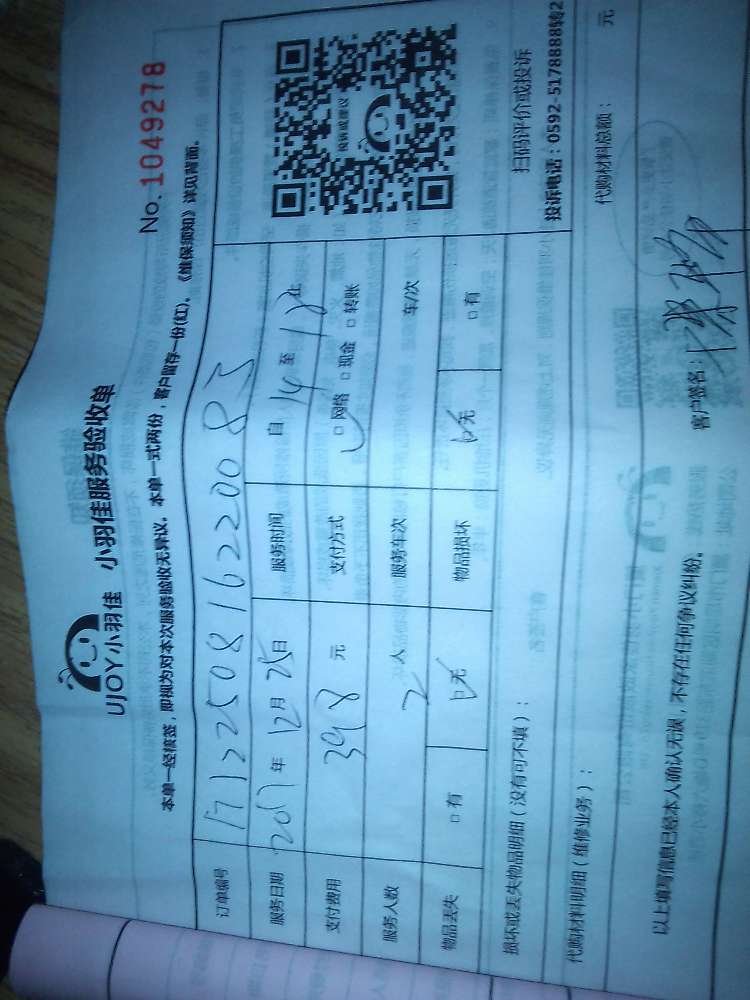 UJOY小羽佳 小羽佳服务验收单
No. 1049278
本单一经核签，即视为对本次服务验收无异议。本单一式两份，客户留存一份(红)。《维保须知》详见背面。
订单编号 171225081622200083
服务日期 2017年12月25日 服务时间 自14至18止
支付费用 398元 支付方式 □网络 □现金 □转账
服务人数 2人 服务车次 车/次
物品丢失 □有 □无 物品损坏 □无 □有
投诉或建议
扫码评价或投诉
投诉电话：0592-5178888转2
损坏或丢失物品明细（没有可不填）：
代购材料明细（维修业务）： 代购材料总额： 元
以上填写信息已经本人确认无误，不存在任何争议纠纷。 客户签名：